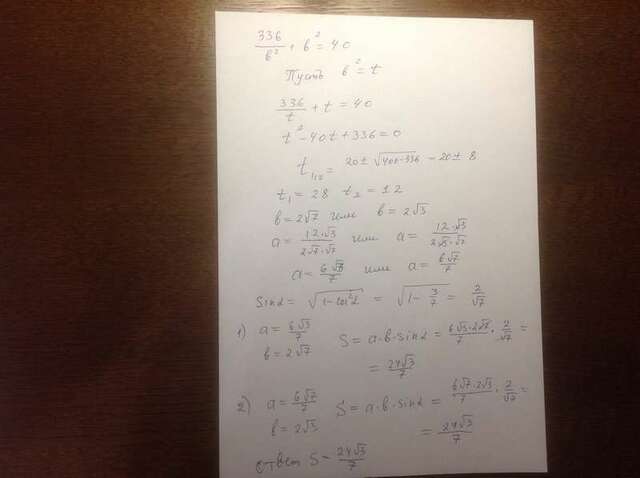 336/в² + в² = 40
Пусть в² = t
336/t + t = 40
t² - 40t + 336 = 0
t₁,₂ = 20 ± √(400-336) = 20 ± 8
t₁ = 28 t₂ = 12
в = 2√7 или в = 2√3
a = 12·√3/(2√7·√7) или a = 12·√3/(2√3·√7)
a = 6√3/7 или a = 6√7/7
Sinα = √(1-cos²α) = √(1 - 3/7) = 2/√7
1) a = 6√3/7
в = 2√7
S = a·в·sinα = 6√3·2√7/7 · 2/√7 =
= 24√3/7
2) a = 6√7/7
в = 2√3
S = a·в·sinα = 6√7·2√3/7 · 2/√7 =
= 24√3/7
ответ S = 24√3/7